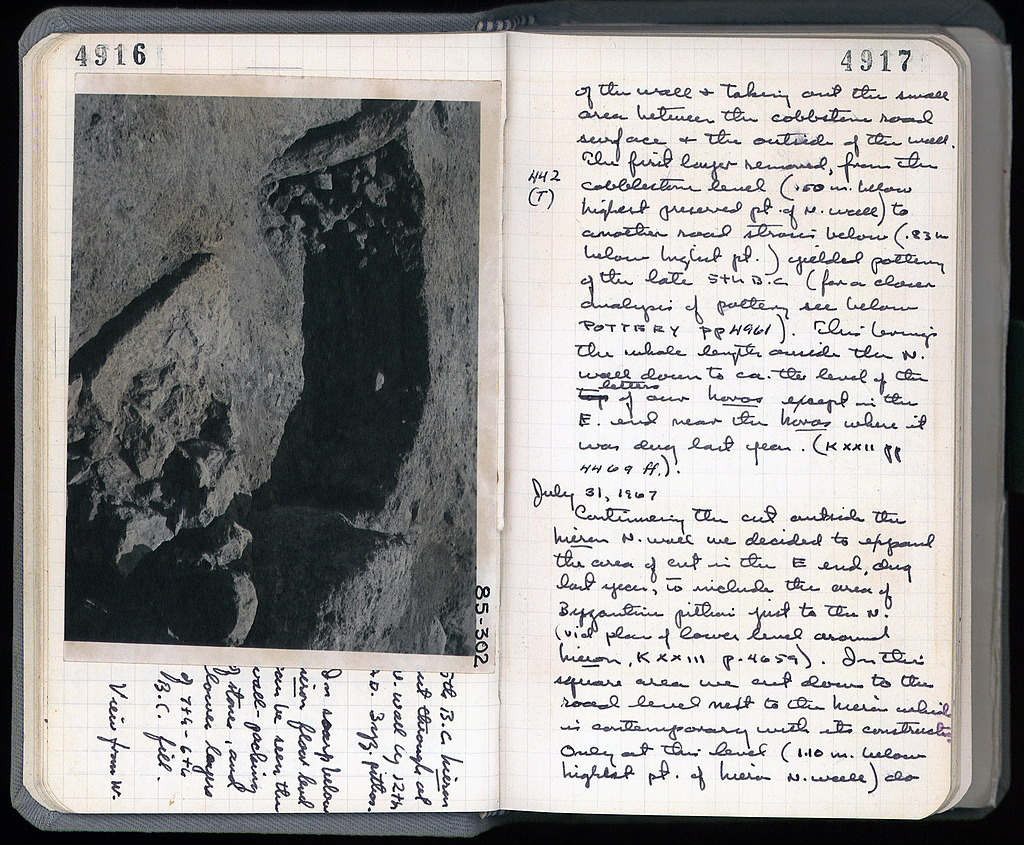 4916
85-302
5th B.C. hieron
cut through at
N. wall by 12th
A.D. Byz. pithos.
In scarp below
hieron floor level
can be seen the
wall-packing
of stones, and
lower layers
of 7th-6th
B.C. fill.
View from W.
4917
of the wall + taking out the small
area between the cobblestone road
surface + the outside of the wall.
The first layer removed, from the
442
(T)
cobblestone level (.50 m. below
highest preserved pt. of N. wall) to
another road stroses below (.83m
below highest pt.) yielded pottery
of the late 5th B.C. (for a closer
analysis of pottery see below
POTTERY pp 4961). This brings
the whole length outside the N.
wall down to ca. the level of the
letters
top of our horos except in the
E. end near the horos where it
was dug last year. (K XXII pp
4469 ff.).
July 31, 1967
Continuing the cut outside the
hieron N. wall we decided to expand
the area of cut in the E end, dug
last year, to include the area of
Byzantine pithoi just to the N.
(vid plan of lower level around
hieron, K XXIII p. 4659). In this
square area we cut down to the
road level next to the hieron which
is contemporary with its construction.
Only at this level (1.10 m. below
highest pt. of hieron N. wall) do